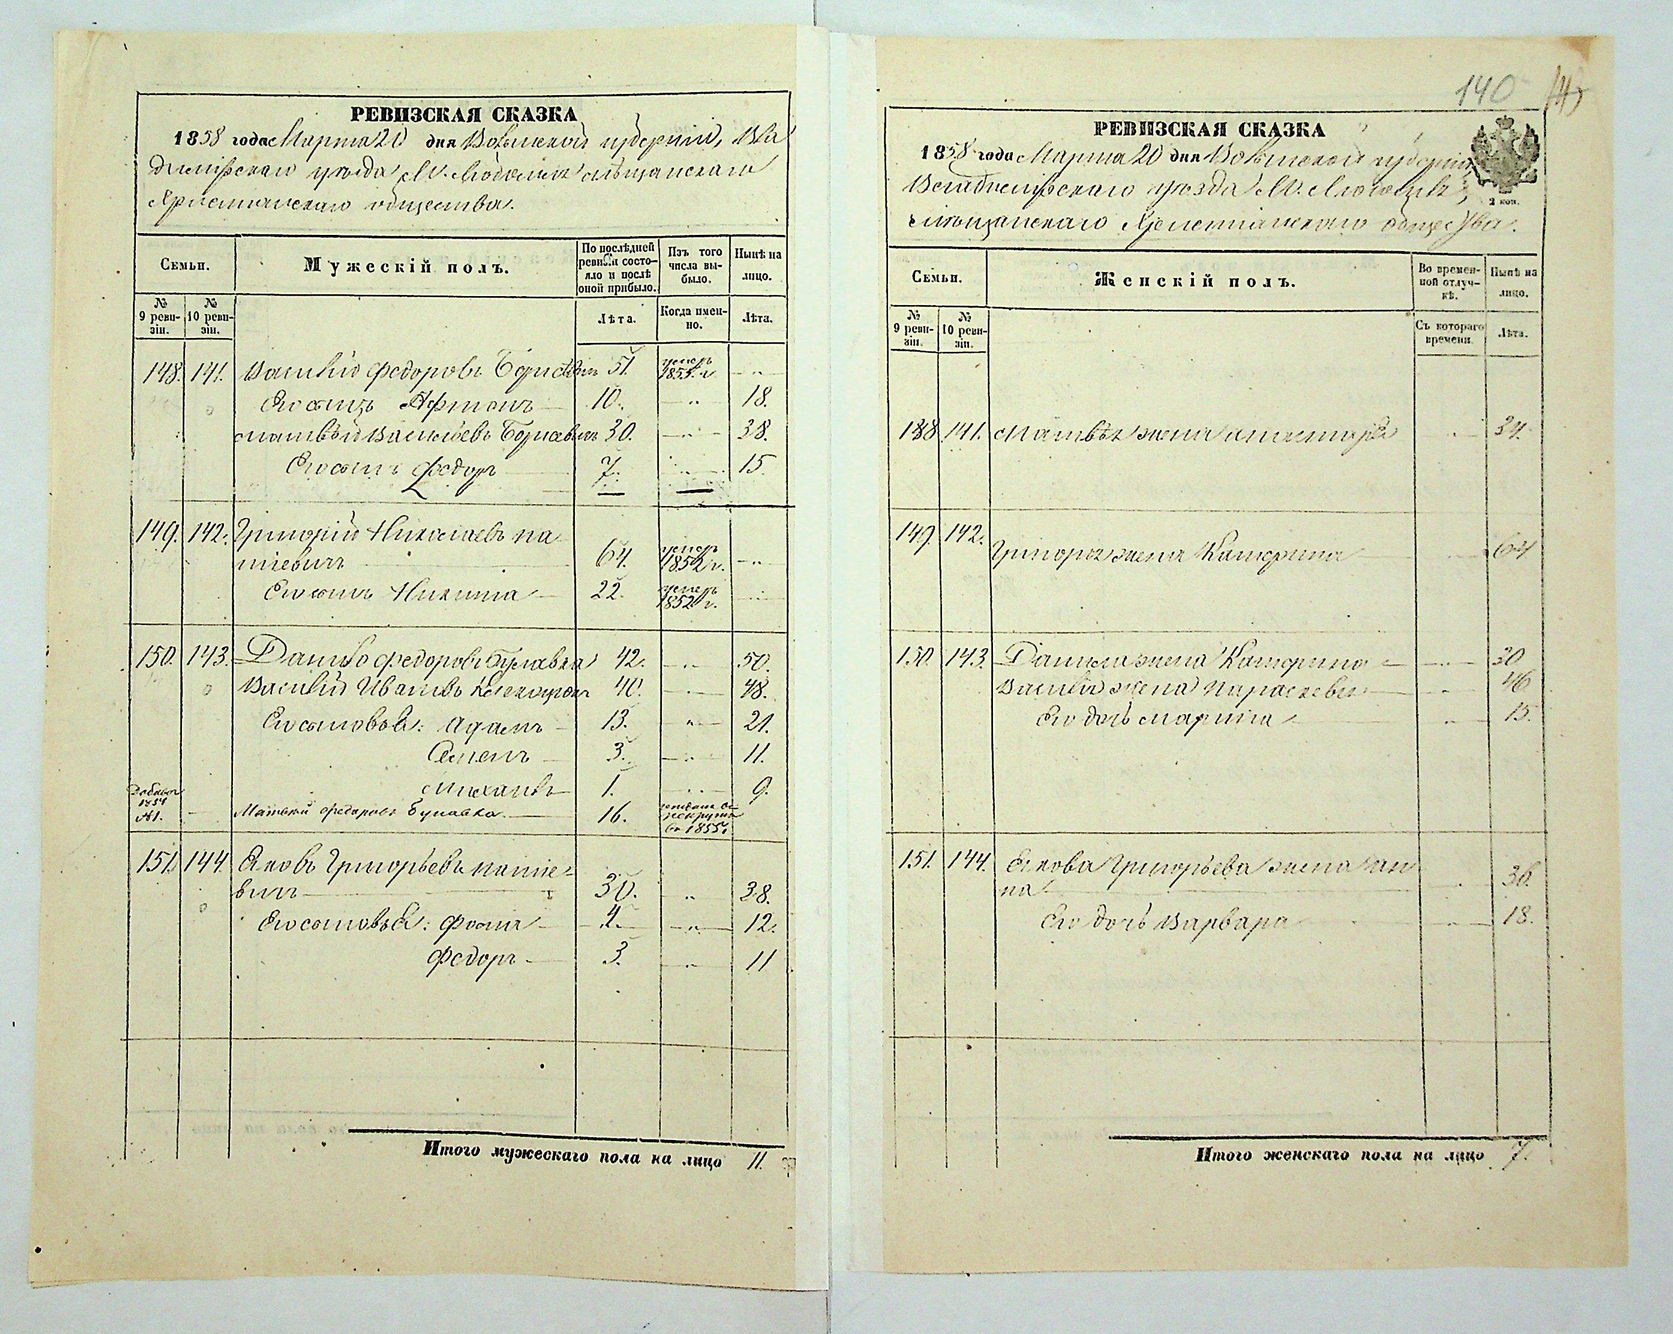 РЕВИЗСКАЯ СКАЗКА
1858 года Марта 20 дня Волынской губернии, Вла
димірскаго уѣзда М. мѣщанскаго
Христианскаго общества.
Семьи.
Мужескій полъ.
По послѣдней ревизіи состояло и послѣ оной прибыло.
Изъ того числа выбыло.
Нынѣ на лицо.
№ 9 ревизіи.
№ 10 ревизіи.
Лѣта.
Когда именно.
Лѣта.
148. 141. Василій Федоровъ 51. умеръ 185 г. - " -
Его сынъ 10. - " - 18.
Матвѣй Васильевъ 30. - " - 38.
Его сынъ Федоръ 7. - " - 15.
149. 142. Григорій Николаевъ Па
ціевичъ 64. умеръ 1852 г. - " -
Его сынъ Никита 22. умеръ 1852 г.
150. 143. Данило Федоровъ Булавка 42. - " - 50.
Василій Ивановъ 40. - " - 48.
Его сыновья: Адамъ 13. - " - 21.
Семенъ 3. - " - 11.
Михаилъ 1. - " - 9.
1854 №1. - Матвѣй Федоровъ Булавка 16. рекруты въ 1855 г.
151. 144. Яковъ Григорьевъ Паціе-
вичъ 30. " 38.
Его сыновья: Фома 4. - " - 12.
Федоръ 3. - " - 11
Итого мужескаго пола на лицо 11.
140
РЕВИЗСКАЯ СКАЗКА
1858 года Марта 20 дня Волынской губерніи,
Владимірскаго уѣзда М.
мѣщанскаго Христианскаго общества.
2 коп.
Семьи.
Женскій полъ.
Во временной отлучкѣ.
Нынѣ на лицо.
№ 9 ревизіи.
№ 10 ревизіи.
Съ котораго времени.
Лѣта.
148 141. Матвѣя жена - " - 34.
149 142. Григорья жена Катерина 64
150 143. Данила жена Катерина - " - 30
Василія жена Параскева - " - 46
Его дочь Марина - " - 15.
151. 144. Якова Григорьева жена Ан
на " 36.
Его дочь Варвара - " - 18.
Итого женскаго пола на лицо 7.